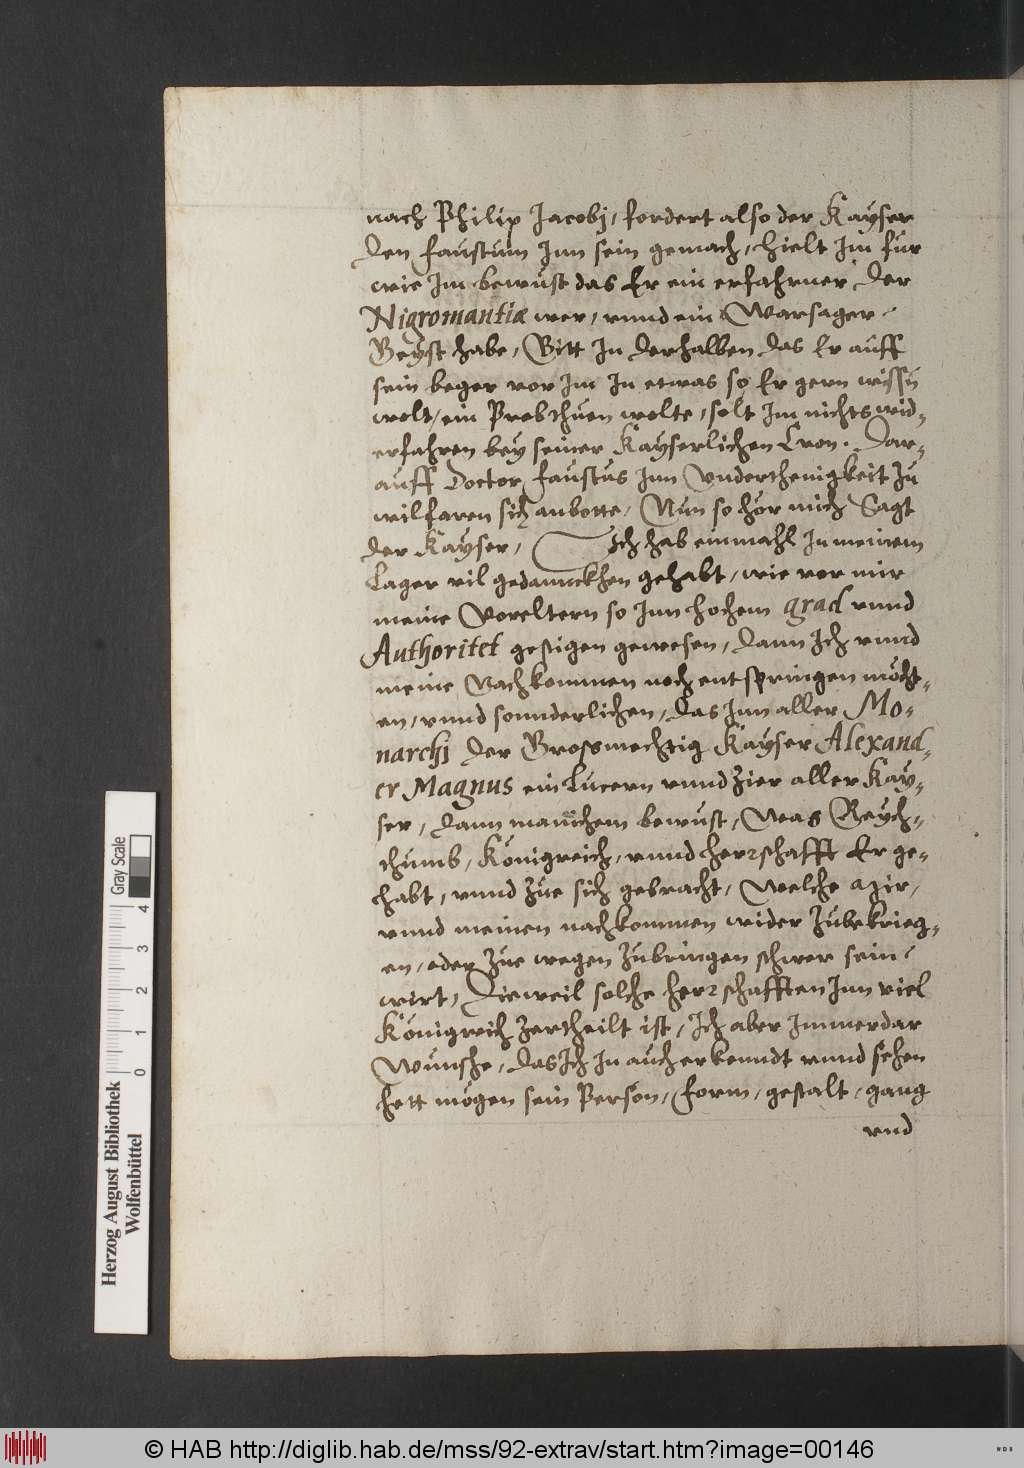 nach Philip Jacobj, fordert also der Kayser
den Faustum Inn sein gemach, hielt Im fur
wie Im bewust das Er ein erfahrner der
Nigromantiæ wer, vnnd ein Warsager
Geyst habe, Bitt In derhalben das Er auff
sein beger vor Im In etwas so Er gern wissen
wolt, ein Prob thuen wolte, solt Im nichts wid-
erfahren bey seiner Kayserlichen Cron. Dar-
auff Doctor Faustus Inn Vnderthenigkeit zu
wilfaren sich anbotte, Nun so hör mich Sagt
der Kayser, Ich hab einmahl In meinem
Lager vil gedannckhen gehabt, wie vor mir
meine Voreltern so Inn hochem grad vnnd
Authoritet gestigen gewesen, dann Ich vnnd
meine Nachkommen noch entspringen möcht-
en, vnnd sonnderlichen, das Inn aller Mo-
narchj der Grossmechtig Kayser Alexand-
er Magnus ein Lucern vnnd Zier aller Kay-
ser, dann manichem bewust, Was Reych-
thumb, Königreich, vnnd herrschafft Er ge-
habt, vnnd Zue sich gebracht, Welche Mir,
vnnd meinen nachkommen wider Zubekrieg-
en, oder Zue wegen Zubringen schwer sein
wirt, Dieweil solche herrschafften Inn viel
Königreich Zertheilt ist, Ich aber Immerdar
Wunsche, das Ich In auch erkenndt vnnd sehen
hett mögen sein Person, form, gestalt, gang
vnd
Herzog August Bibliothek
Wolfenbüttel
Gray Scale
0 1 2 3 4
© HAB http://diglib.hab.de/mss/92-extrav/start.htm?image=00146